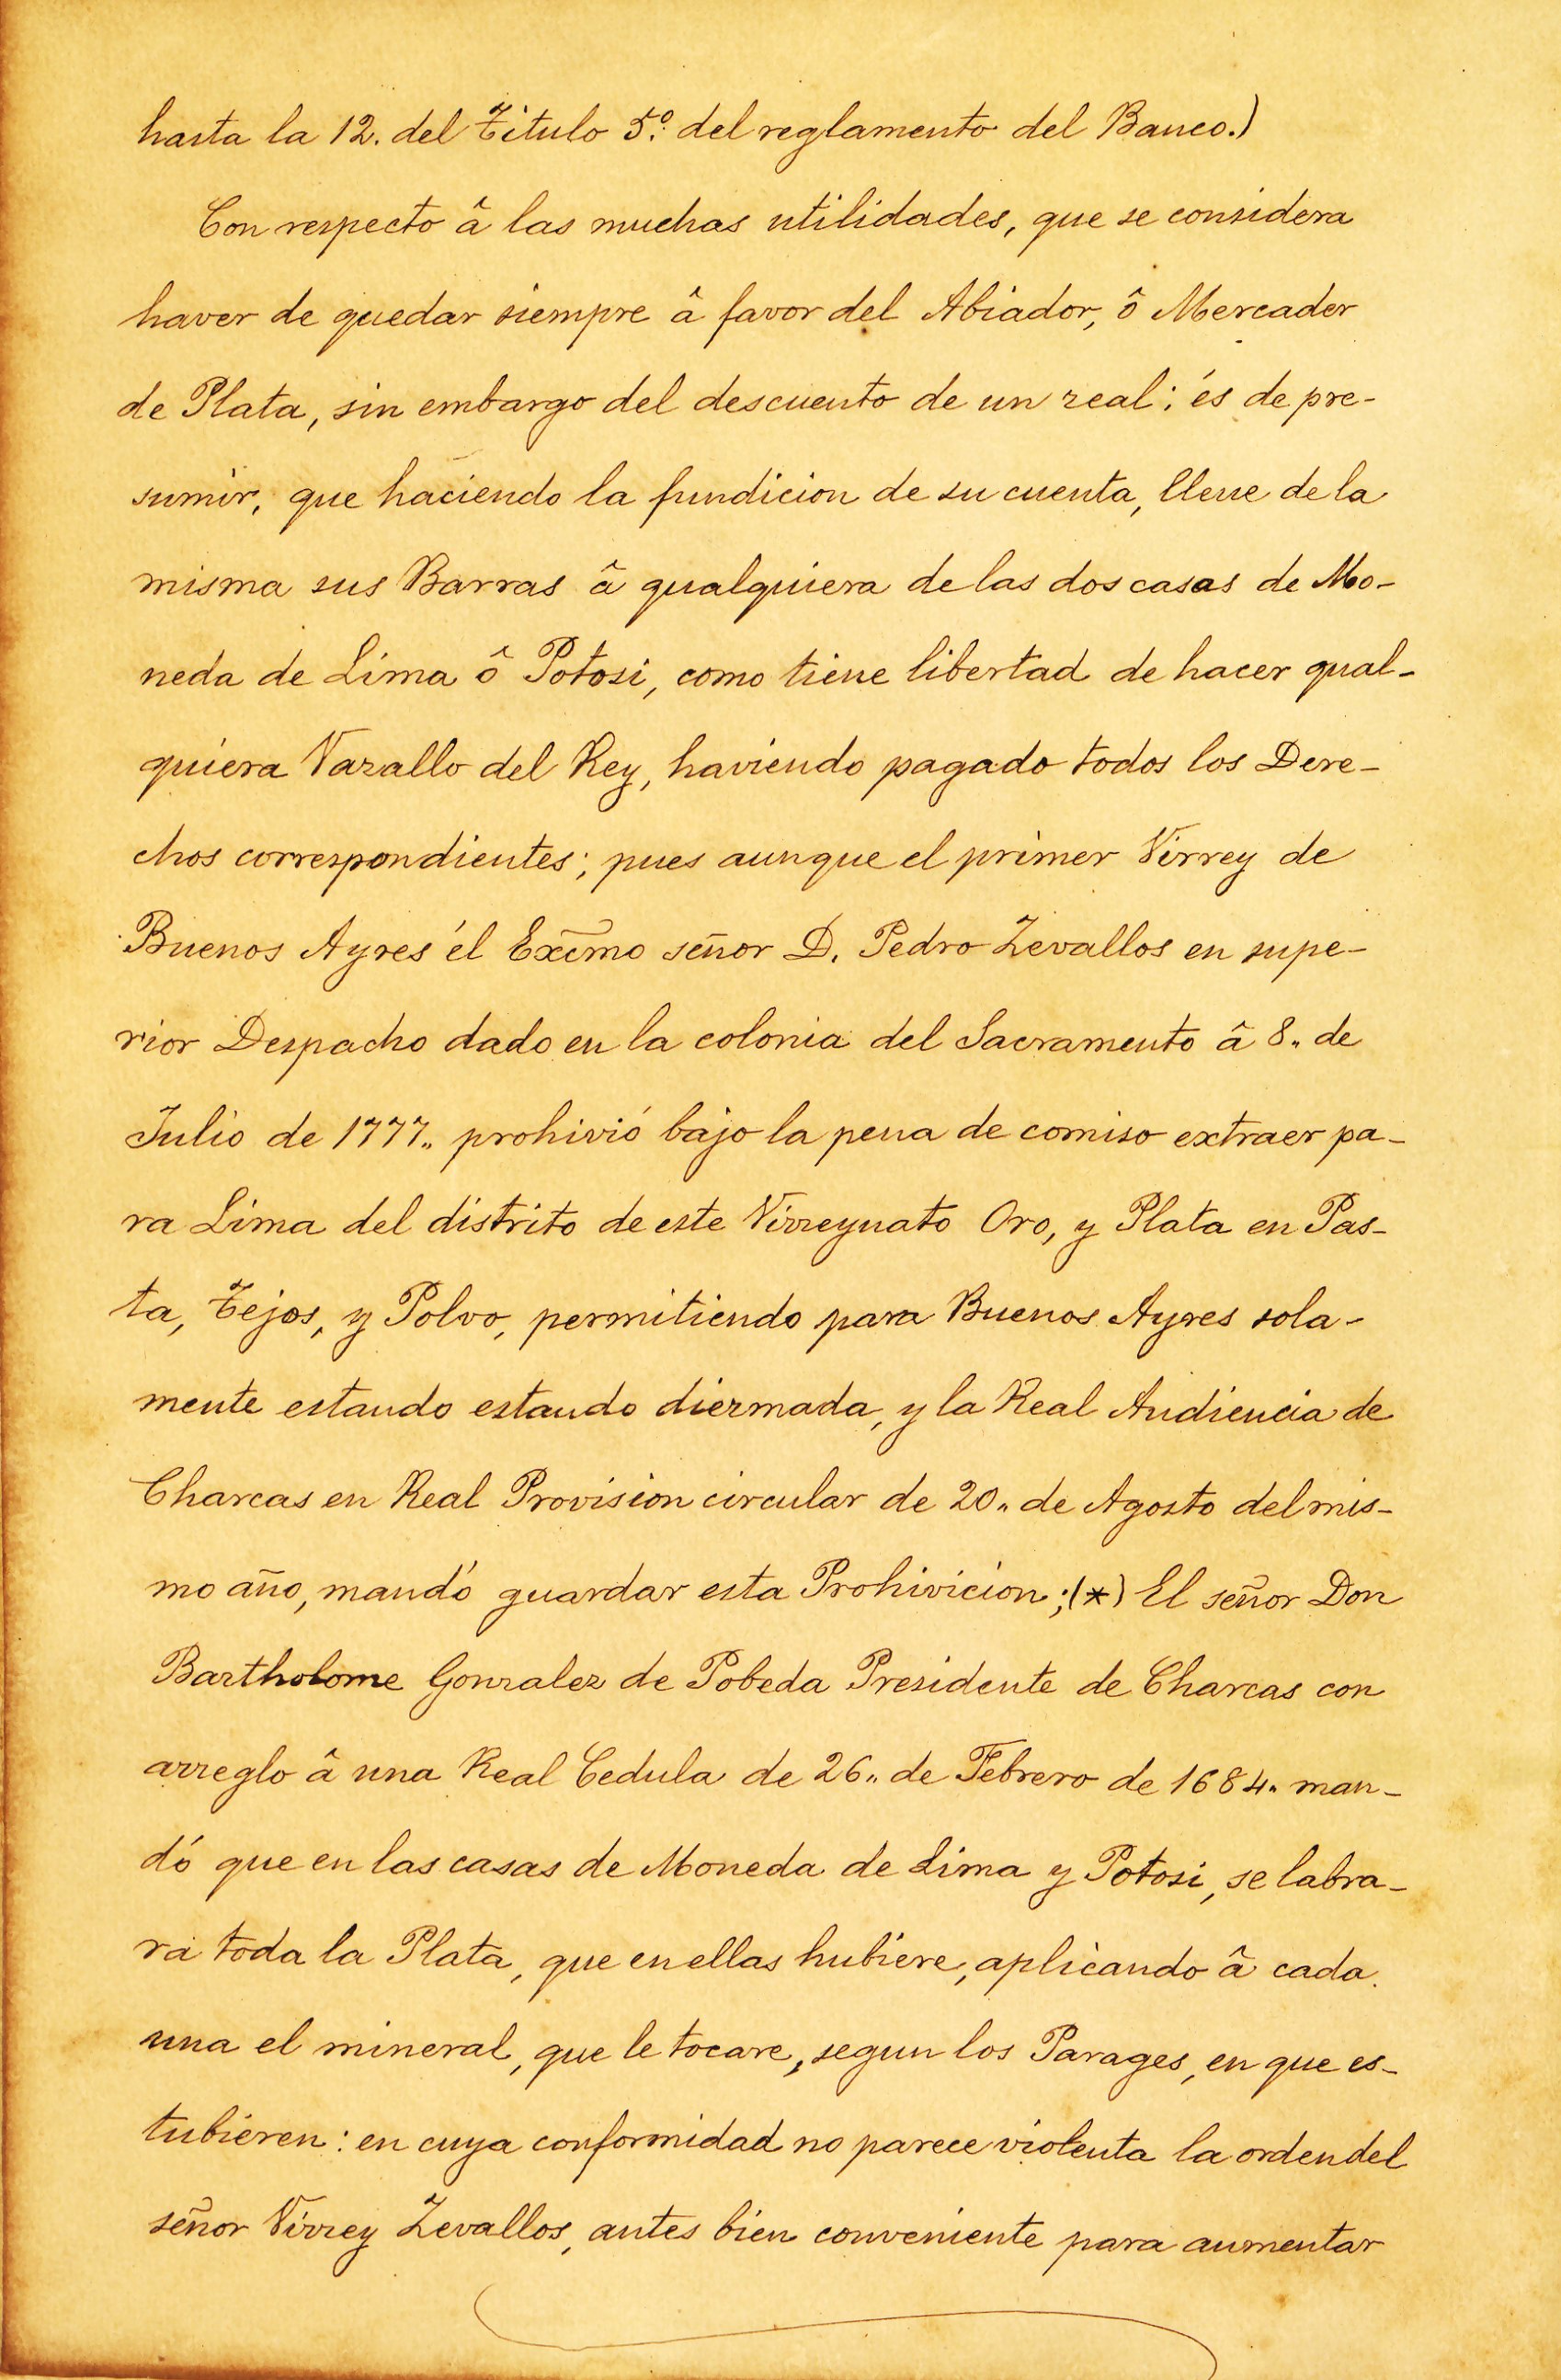 hasta la 12. del Titulo 5º. del reglamento del Banco.)
Con respecto â las muchas utilidades, que se considera
haver de quedar siempre â favor del Abiador, ô Mercader
de Plata, sin embargo del descuento de un real; és de pre-
sumir, que haciendo la fundicion de su cuenta, lleve de la
misma sus Barras â qualquiera de las dos casas de Mo-
neda de Lima ô Potosi, como tiene libertad de hacer qual-
quiera Vazallo del Rey, haviendo pagado todos los Dere-
chos correspondientes; pues aunque el primer Virrey de
Buenos Ayres él Excmo señor D. Pedro Zevallos en supe-
rior Despacho dado en la colonia del Sacramento â 8.. de
Julio de 1777.. prohivió bajo la pena de comiso extraer pa-
ra Lima del distrito de este Virreynato Oro, y Plata en Pas-
ta, Tejos, y Polvo, permitiendo para Buenos Ayres sola-
mente estando estando diezmada, y la Real Audiencia de
Charcas en Real Provision circular de 20.. de Agosto del mis-
mo año, mandó guardar esta Prohivicion; (*) El señor Don
Bartholome Gonzalez de Pobeda Presidente de Charcas con
arreglo â una Real Cedula de 26.. de Febrero de 1684.. man-
dó que en las casas de Moneda de Lima y Potosi, se labra-
ra toda la Plata, que en ellas hubiere, aplicando â cada
una el mineral, que le tocare, segun los Parages, en que es-
tubieren: en cuya conformidad no parece violenta la orden del
señor Virrey Zevallos, antes bien conveniente para aumentar